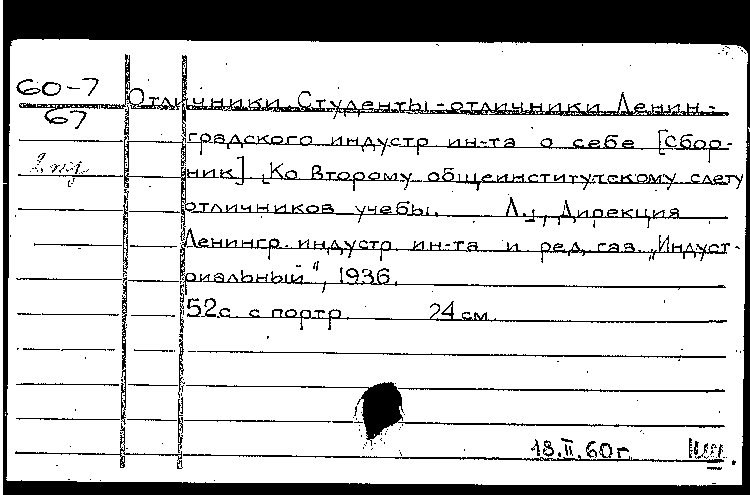 60-7
67
Отличники. Студенты-отличники Ленин-
градского индустр ин-та о себе [Сбор-
ник]. [Ко второму общеинститутскому слету
отличников учебы. Л., Дирекция
Ленингр. индустр ин-та и ред. газ. „Индуст-
риальный“, 1936.
52с. с портр. 24 см.
18.II.60г